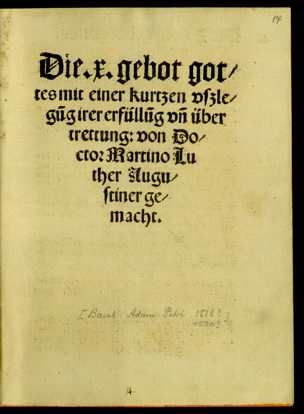 14
Die .x. gebot got⸗
tes mit einer kurtzen vſzle⸗
gūg irer erfüllūg vn̄ über
trettung: von Do⸗
ctor Martino Lu
ther Augu⸗
ſtiner ge⸗
macht.
[Basel Adam Petri 1518?]
1520?